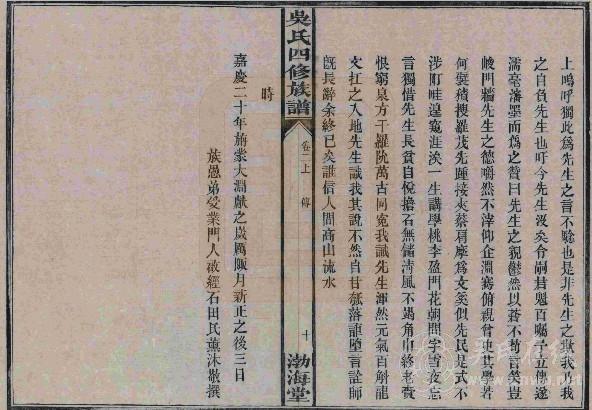 上嗚呼獨此為先生之言不驗也是非先生之欺我我
之自負先生也吁今先生汲矣令嗣封魁百囑予立傳遂
濡毫瀋墨而為之贊曰先生之貌鬱然以蒼不苟言笑豈
峻門牆先生之德嚼然不滓仰企淵騫俯視賁 其學若
何製積搜羅茂先踵接夾蔡肩摩為文奚似先民是式不
涉町畦遑窺涯涘一生講學桃李盈門花朝問字雪夜忘
言獨惜先生長貧自悅擔石無儲清風不竭角巾終老賚
恨窮泉方干羅阮萬古同冤我識先生渾然元氣百斛龍
文扛之入地先生識我其說不然自甘瓠落誰墮言詮師
旣長辭余終已矣誰信人間高山流水
時
嘉慶二十年旃蒙大淵獻之歲厲陬月新正之後三日
族愚弟受業門人啟經石田氏薰沐敬撰
吳氏四修族譜
卷二上 傳
十
渤海堂